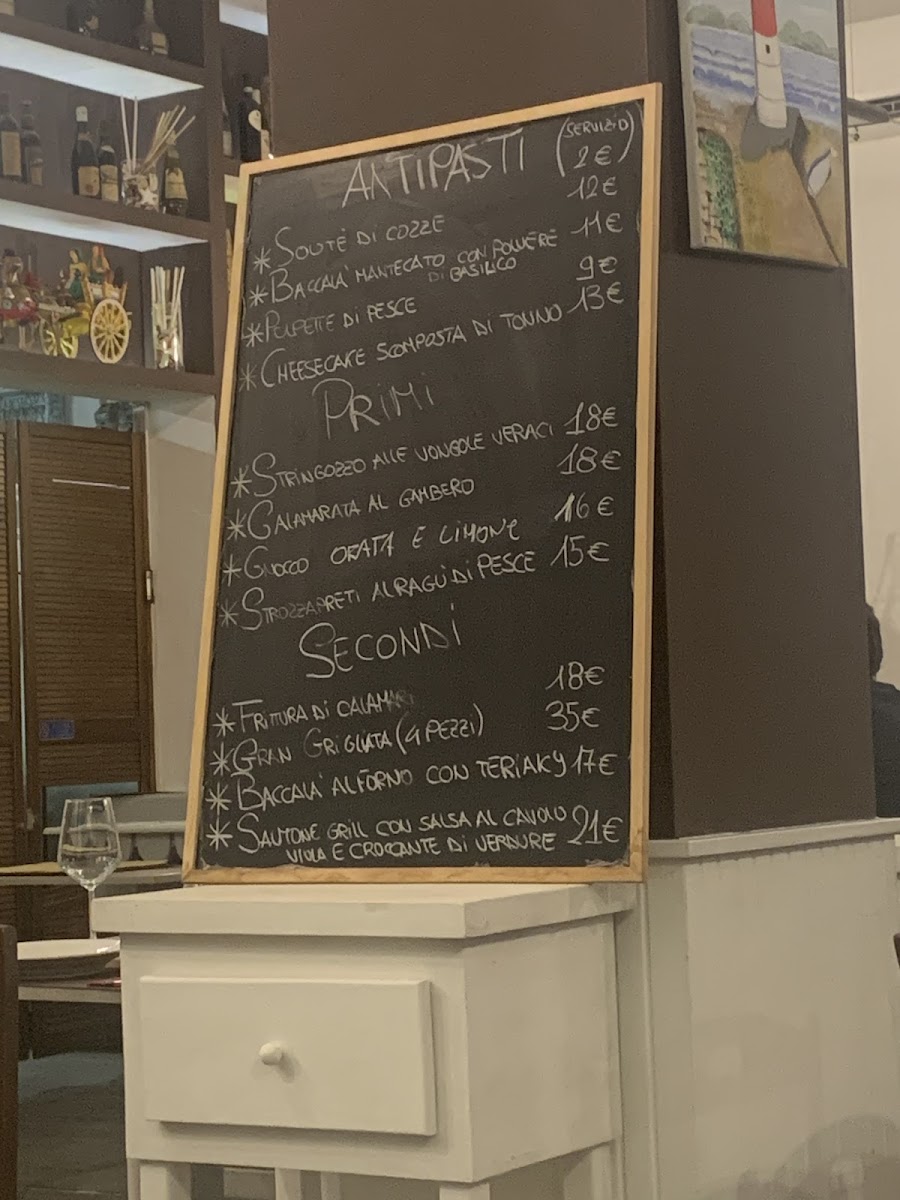 ANTIPASTI (SERVIZIO 2€)
*SOUTÈ DI COZZE 12€
*BACCALA' MANTECATO CON POLVERE DI BASILICO 11€
*POLPETTE DI PESCE 9€
*CHEESECAKE SCOMPOSTA DI TONNO 13€
PRIMI
*STRINGOZZO ALLE VONGOLE VERACI 18€
*CALAMARATA AL GAMBERO 18€
*GNOCCO ORATA E LIMONE 16€
*STROZZAPRETI AL RAGÙ DI PESCE 15€
SECONDI
*FRITTURA DI CALAMARI 18€
*GRAN GRIGLIATA (4 PEZZI) 35€
*BACCALA' AL FORNO CON TERIAKY 17€
*SALMONE GRILL CON SALSA AL CAVOLO
VIOLA E CROCCANTE DI VERDURE 21€